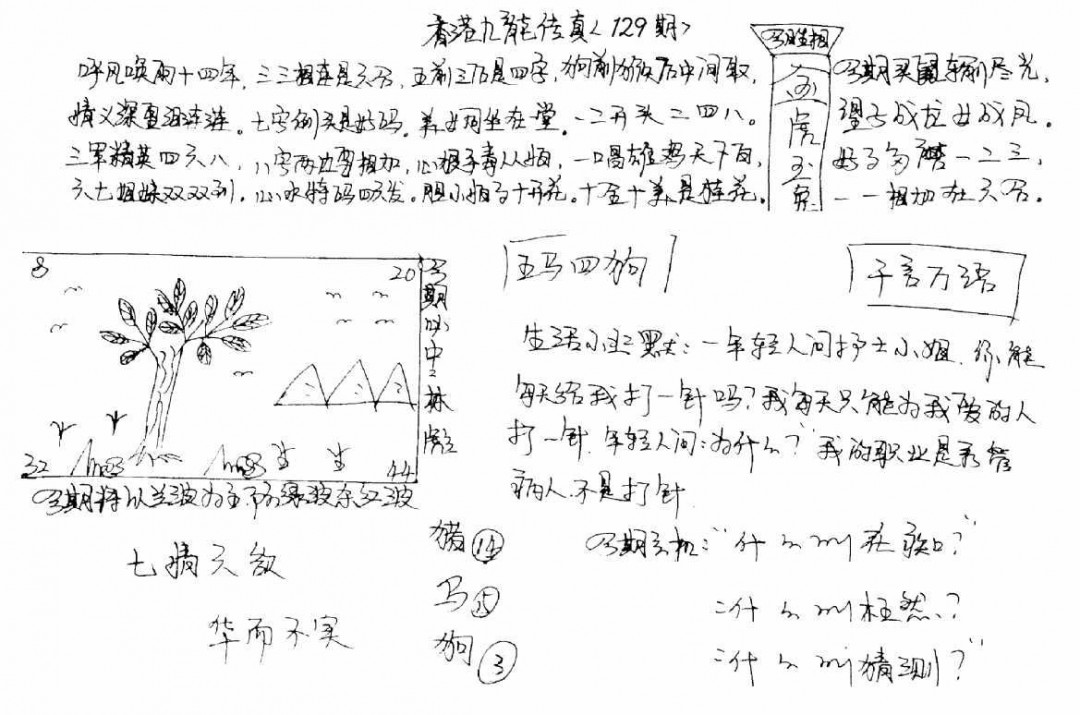 香港九龍传真<129期>
呼风唤雨十四年，三三相连是六合，五前三后是四字，狗前猴后中间取，
情义深重泪连涟。七字倒头是好码。兼 同坐在堂。一二开头二四八。
三军精英四六八，八字两边要相加，心狠手毒从 ，一唱雄鸡天下白，
六七姐妹双双到，心水特码四次发。胆小 子十开花。十全十美是桂花。
今期买 尽光，
望子成龙女成凤。
好 一二三，
一一相加在六合。
五马四狗
千言万语
8
20
32
44
今期必中林
今期特以兰波为主 绿波余红波
生活小 默：一年轻人问护士小姐.你能
每天给我打一针吗？我每天只能为我爱的人
打一针.年轻人问：为什么？"我的职业是看管
病人.不是打针
七情六欲
华而不实
猪⑭
马⑮
狗③
今期玄机："一什么叫 ？"
二什么叫枉然？
三什么叫猜测？"